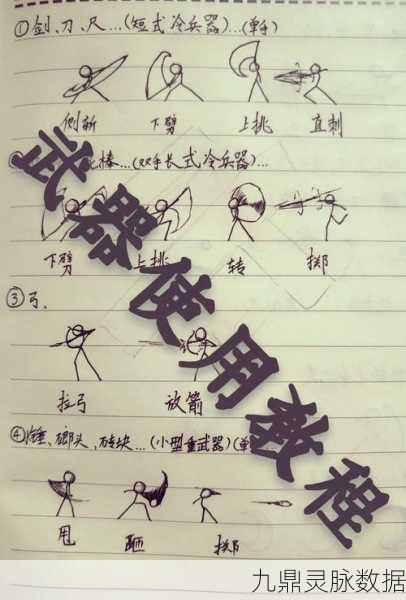 ①剑、刀、尺...(短式冷兵器)...(单手)
侧斩 下劈 上挑 直刺
棒...(双手长式冷兵器)...
下劈 上挑 转 掷
③弓.
拉弓 放箭
④锤、榔头、砖块...(小型重武器)(单
甩 砸 掷
武器使用教程
九鼎灵脉数据